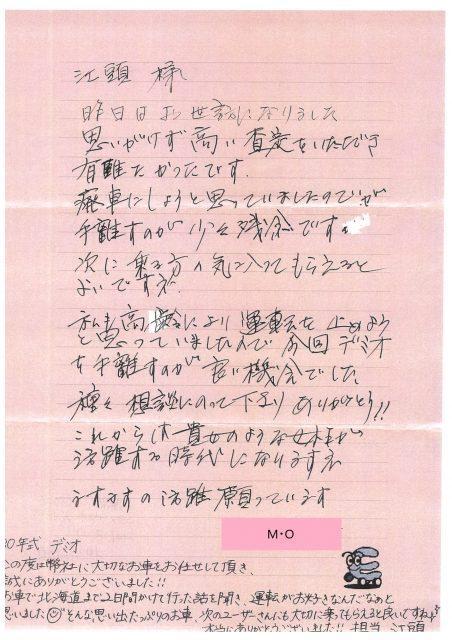 江頭 様
昨日はお世話になりました
思いがけず高い査定をいただき
有難たかったです.
廃車にしようと思っていましたのでが
手離すのが少々残念です。
次に乗る方の気に入ってもらえると
よいですネ
私も高齢により運転を止めよう
と思っていましたので今回デミオ
を手離すのが良い機会でした
種々相談にのって下さりありがとう!!
これからは貴女のような女性が
活躍する時代になりますネ
ますますの活躍願っています
M・O
0年式 デミオ
この度は弊社に大切なお車をお任せして頂き、
誠にありがとうございました!!
お車で北海道まで2日間かけて行った話を聞き、運転がお好きなんだなぁと
思いました そんな思い出たっぷりのお車、次のユーザーさんにも大切に乗ってもらえると良いですね
本当にありがとうございました!! 担当 江頭